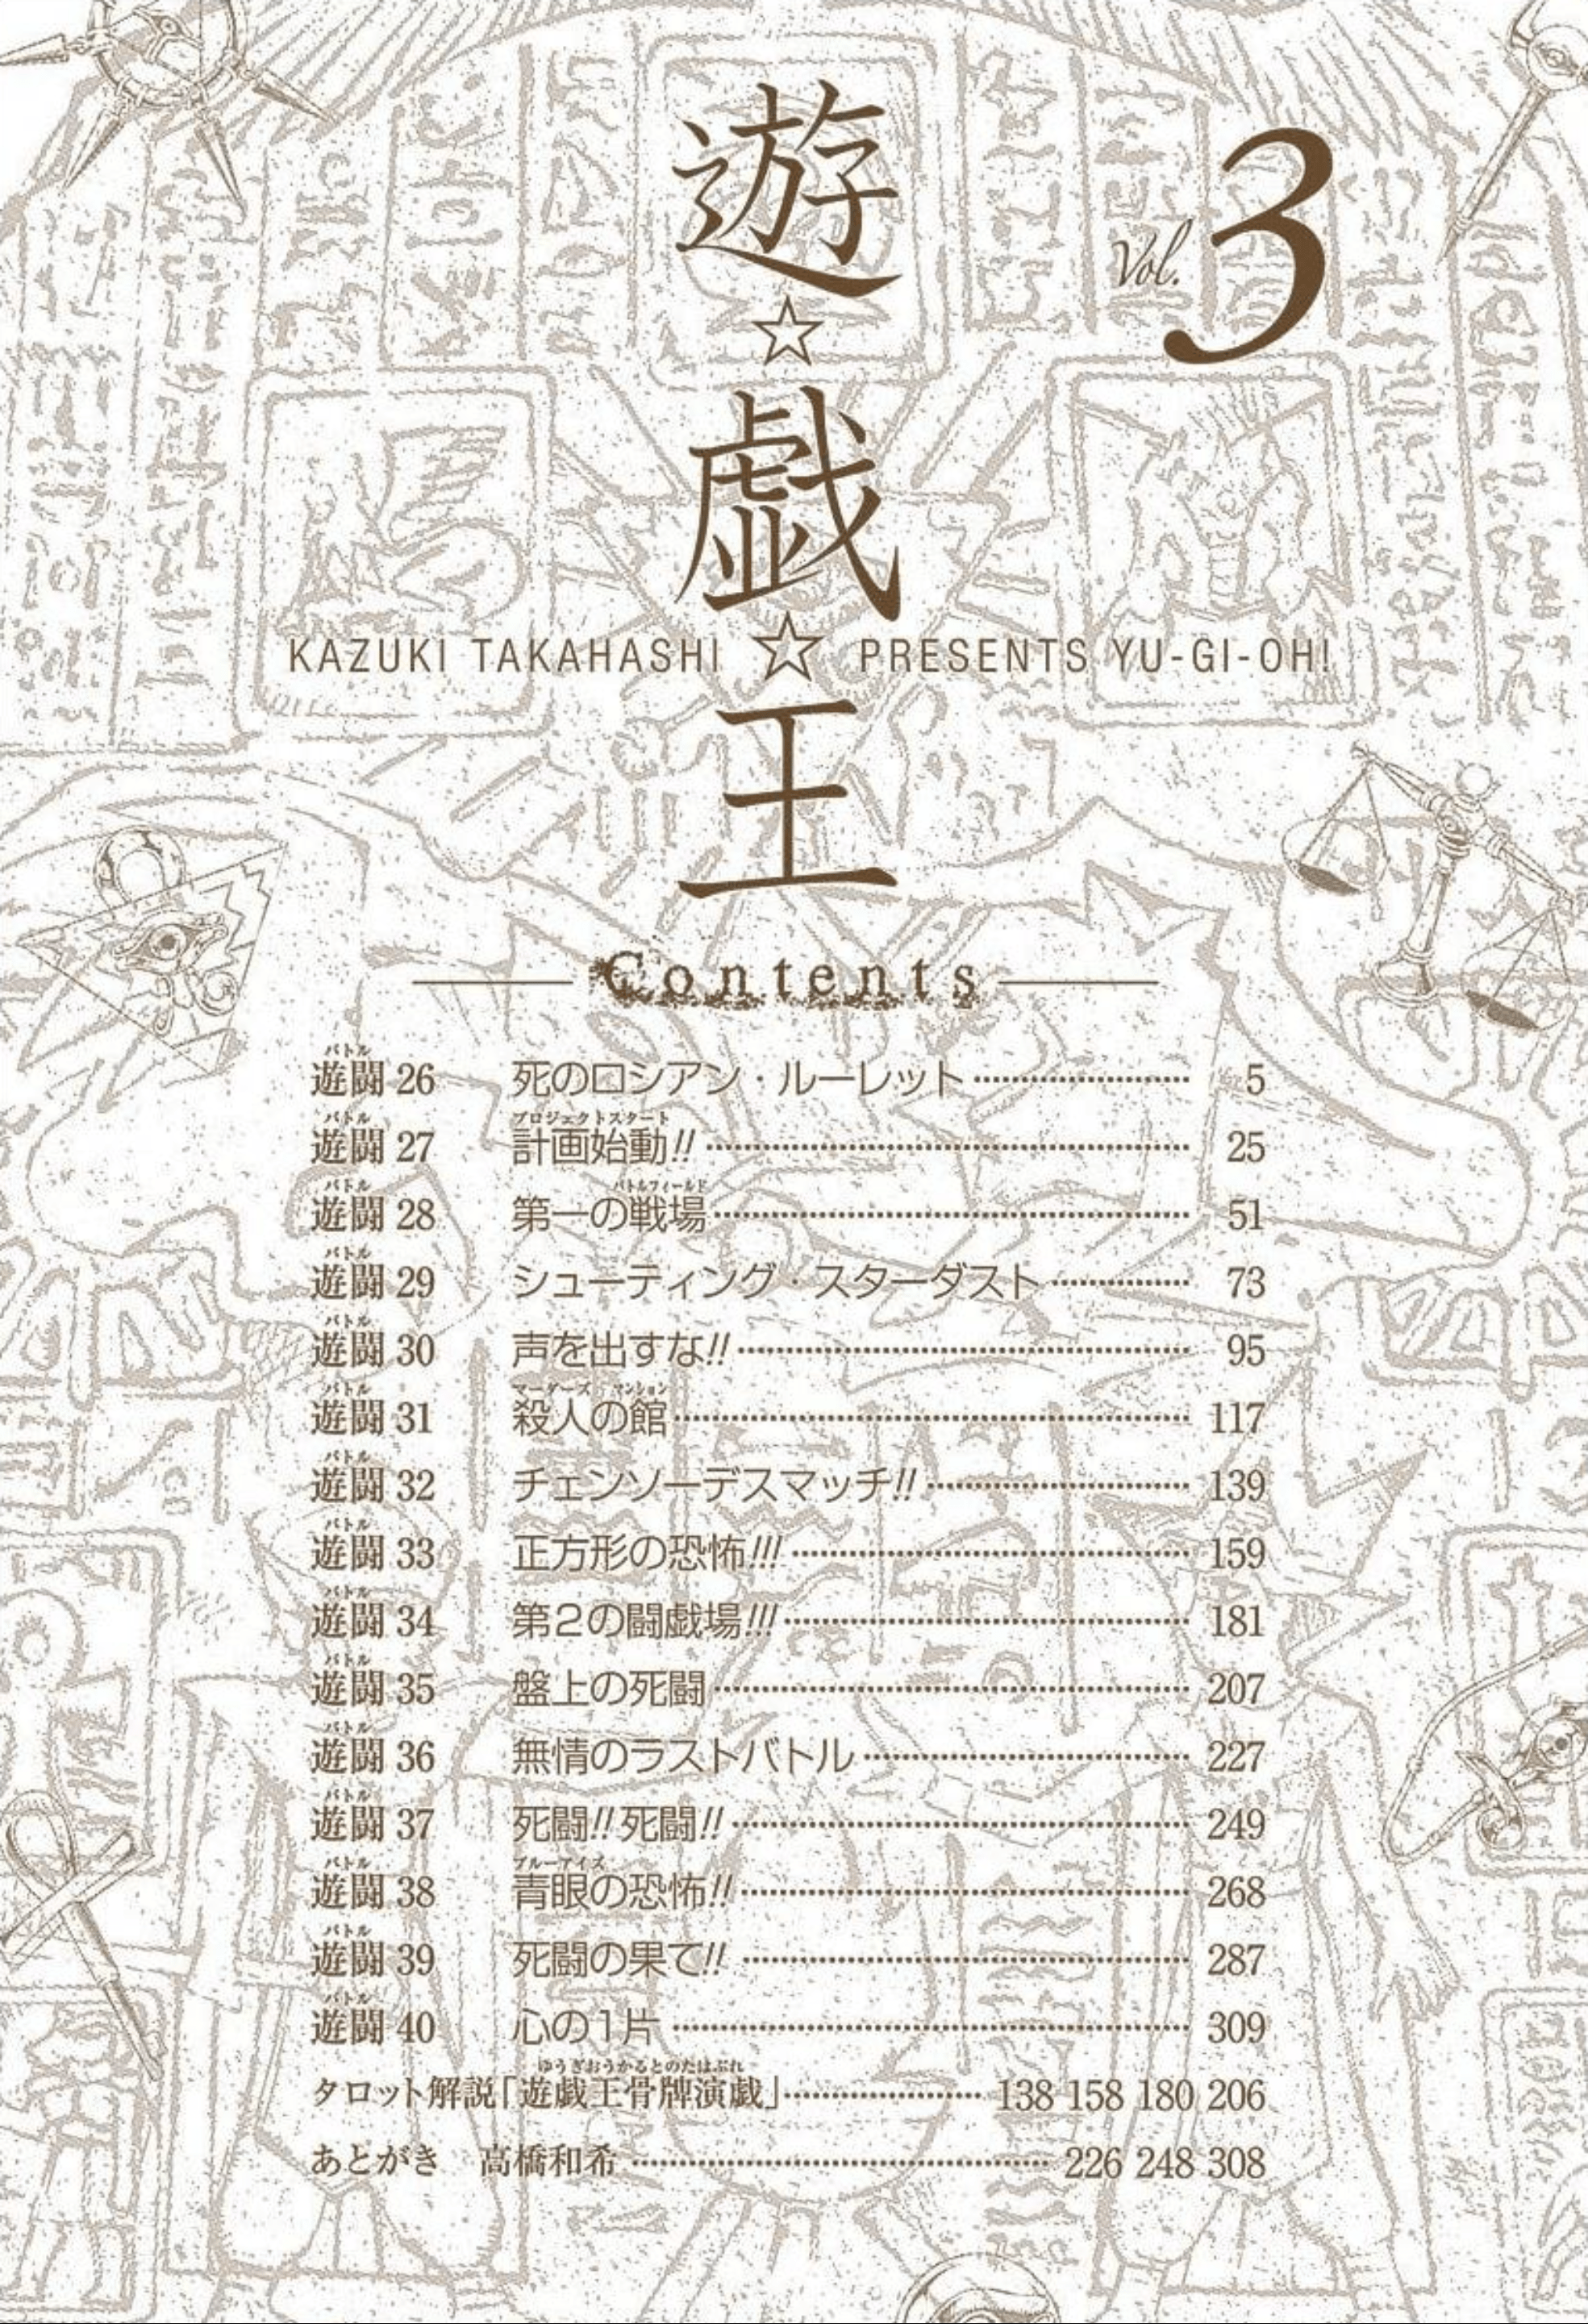 遊☆戯☆王
Vol. 3
KAZUKI TAKAHASHI ☆ PRESENTS YU-GI-OH!
Contents
バトル
遊闘 26 死のロシアン・ルーレット 5
バトル プロジェクトスタート
遊闘 27 計画始動!! 25
バトル バトルフィールド
遊闘 28 第一の戦場 51
バトル
遊闘 29 シューティング・スターダスト 73
バトル
遊闘 30 声を出すな!! 95
バトル マーダーズ マンション
遊闘 31 殺人の館 117
バトル
遊闘 32 チェンソーデスマッチ!! 139
バトル
遊闘 33 正方形の恐怖!!! 159
バトル
遊闘 34 第2の闘戯場!!! 181
バトル
遊闘 35 盤上の死闘 207
バトル
遊闘 36 無情のラストバトル 227
バトル
遊闘 37 死闘!! 死闘!! 249
バトル ブルーアイズ
遊闘 38 青眼の恐怖!! 268
バトル
遊闘 39 死闘の果て!! 287
バトル
遊闘 40 心の1片 309
ゆうぎおうかるとのたはぶれ
タロット解説「遊戯王骨牌演戯」 138 158 180 206
あとがき 高橋和希 226 248 308